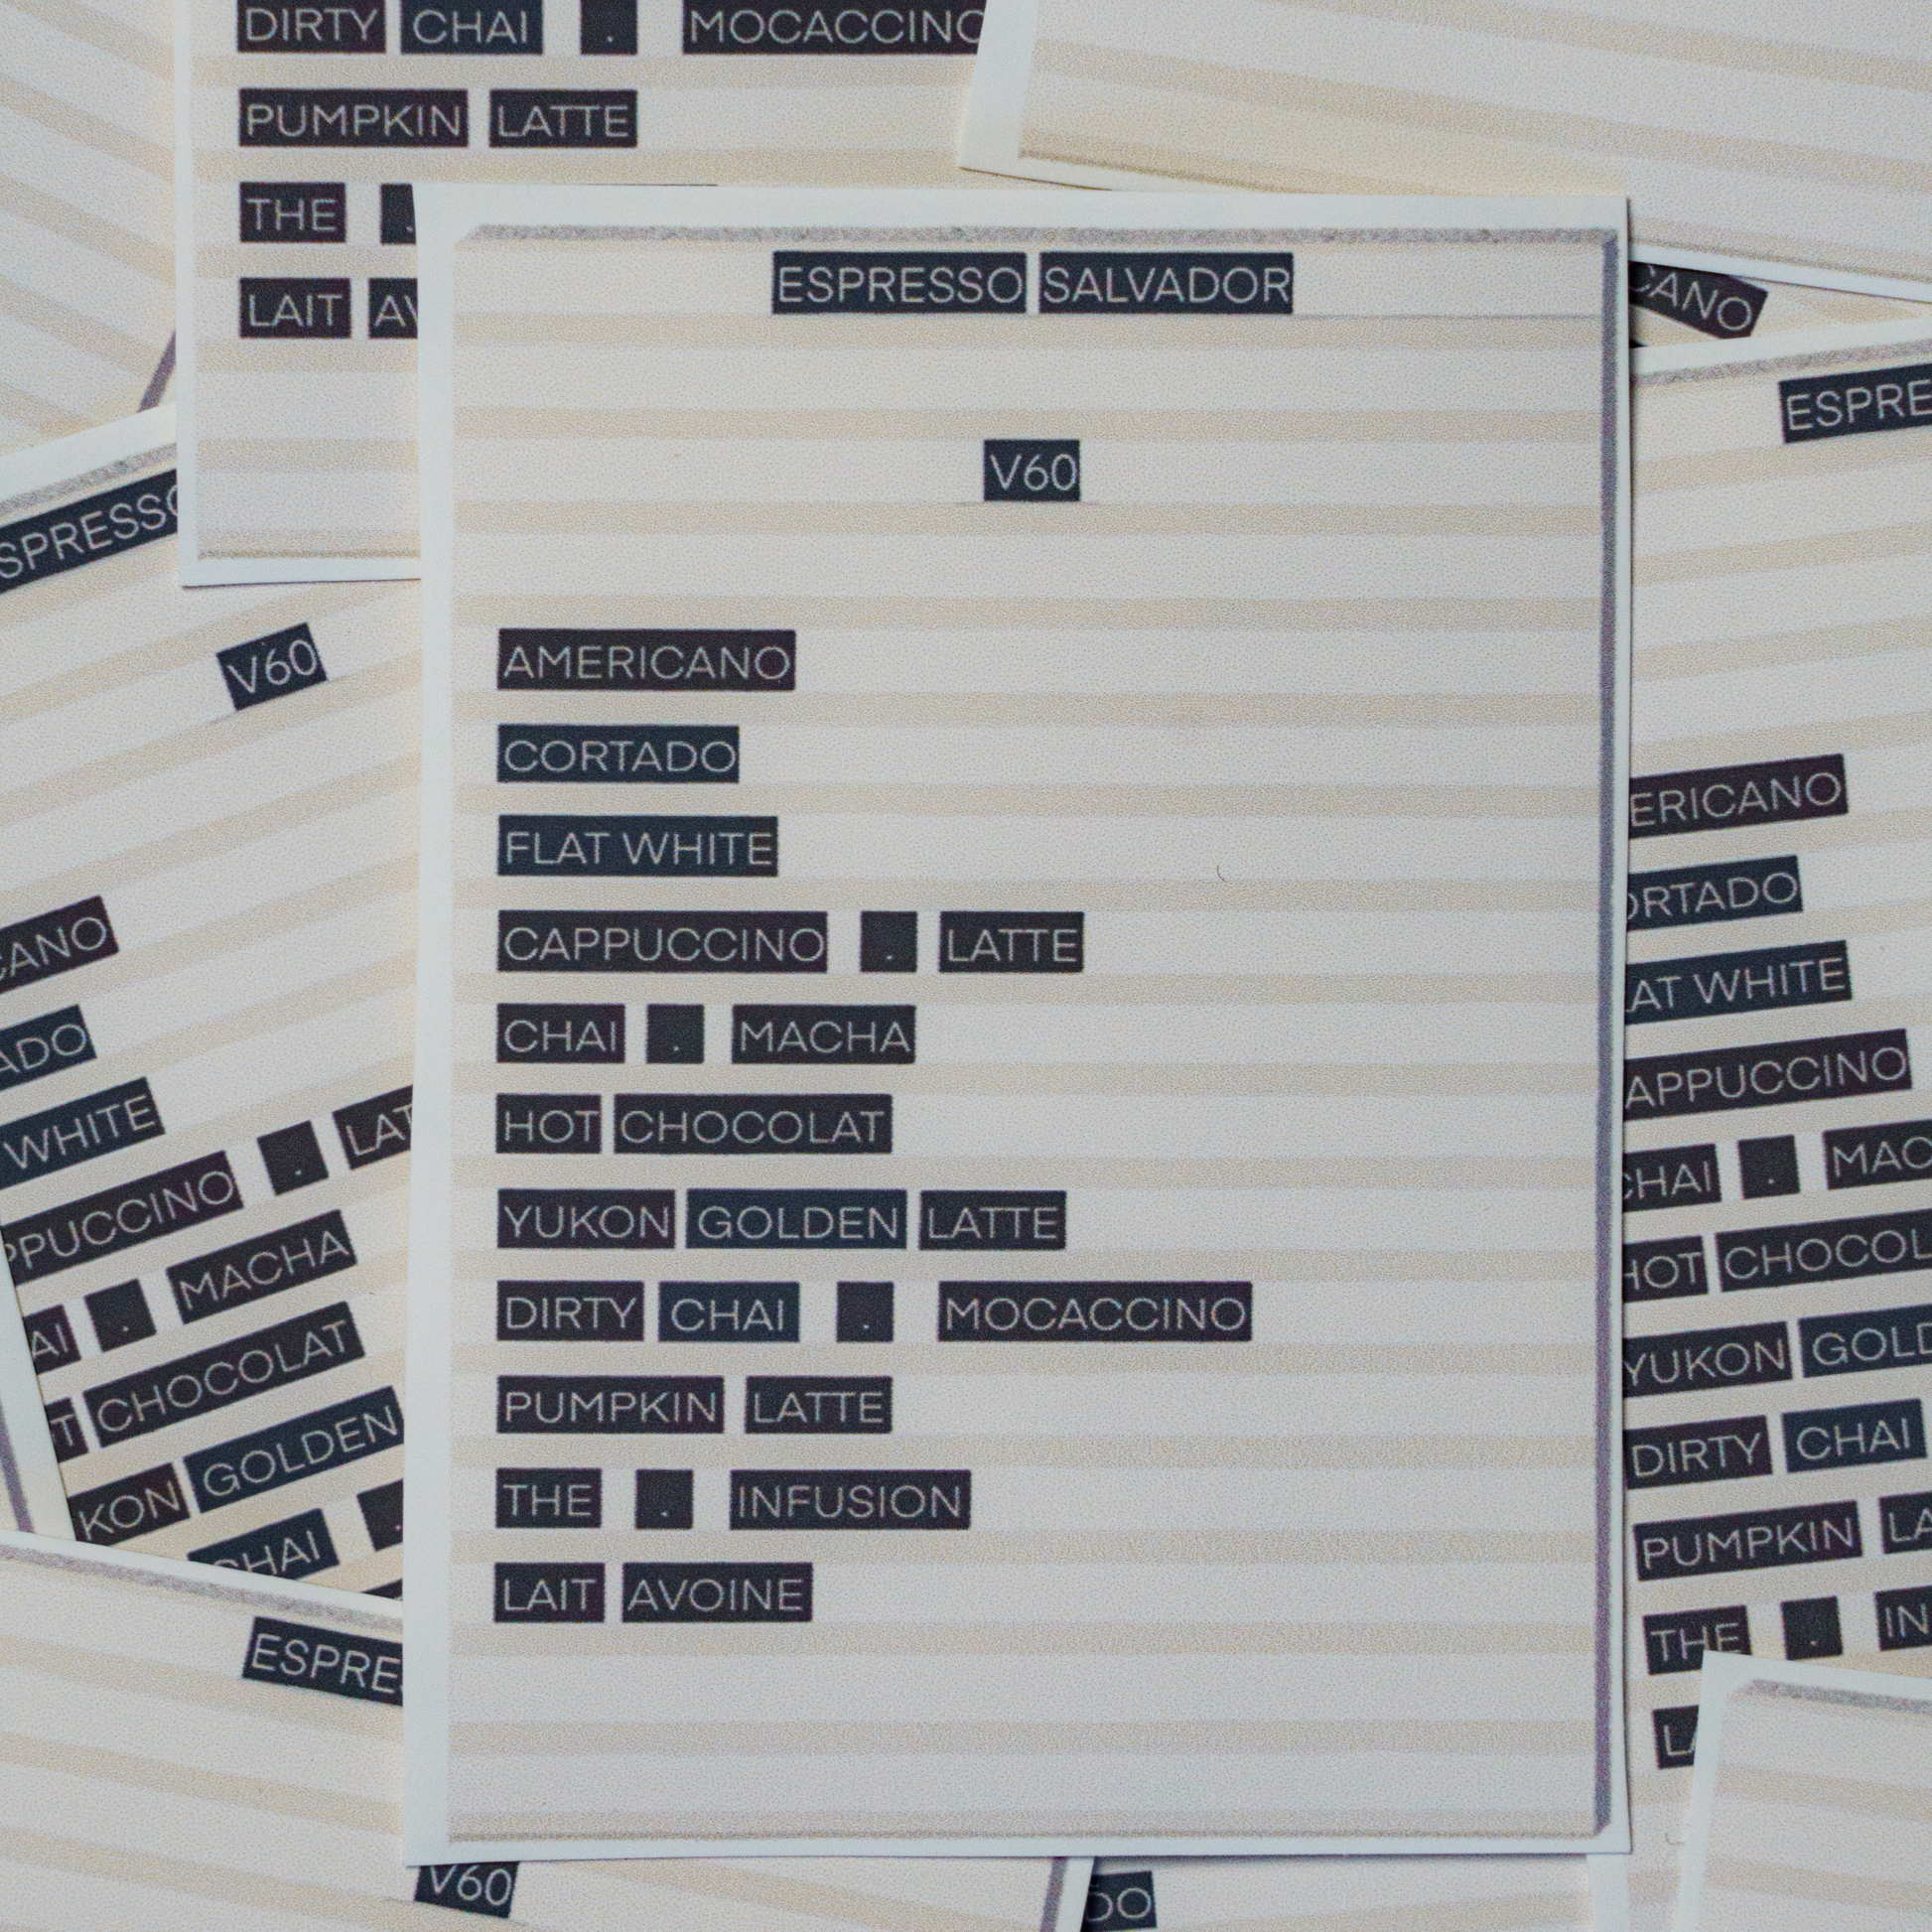 DIRTY CHAI . MOCACCINO
PUMPKIN LATTE
THE .
LAIT AV
ESPRESSO SALVADOR
V60
AMERICANO
CORTADO
FLAT WHITE
CAPPUCCINO . LATTE
CHAI . MACHA
HOT CHOCOLAT
YUKON GOLDEN LATTE
DIRTY CHAI . MOCACCINO
PUMPKIN LATTE
THE . INFUSION
LAIT AVOINE
SPRESSO
V60
CANO
ADO
WHITE
PPUCCINO . LAT
AI . MACHA
T CHOCOLAT
KON GOLDEN
CHAI .
ESPRE
V60
CANO
ESPRE
ERICANO
ORTADO
AT WHITE
APPUCCINO
CHAI . MAC
HOT CHOCOL
YUKON GOLD
DIRTY CHAI
PUMPKIN LA
THE . IN
LA
DO